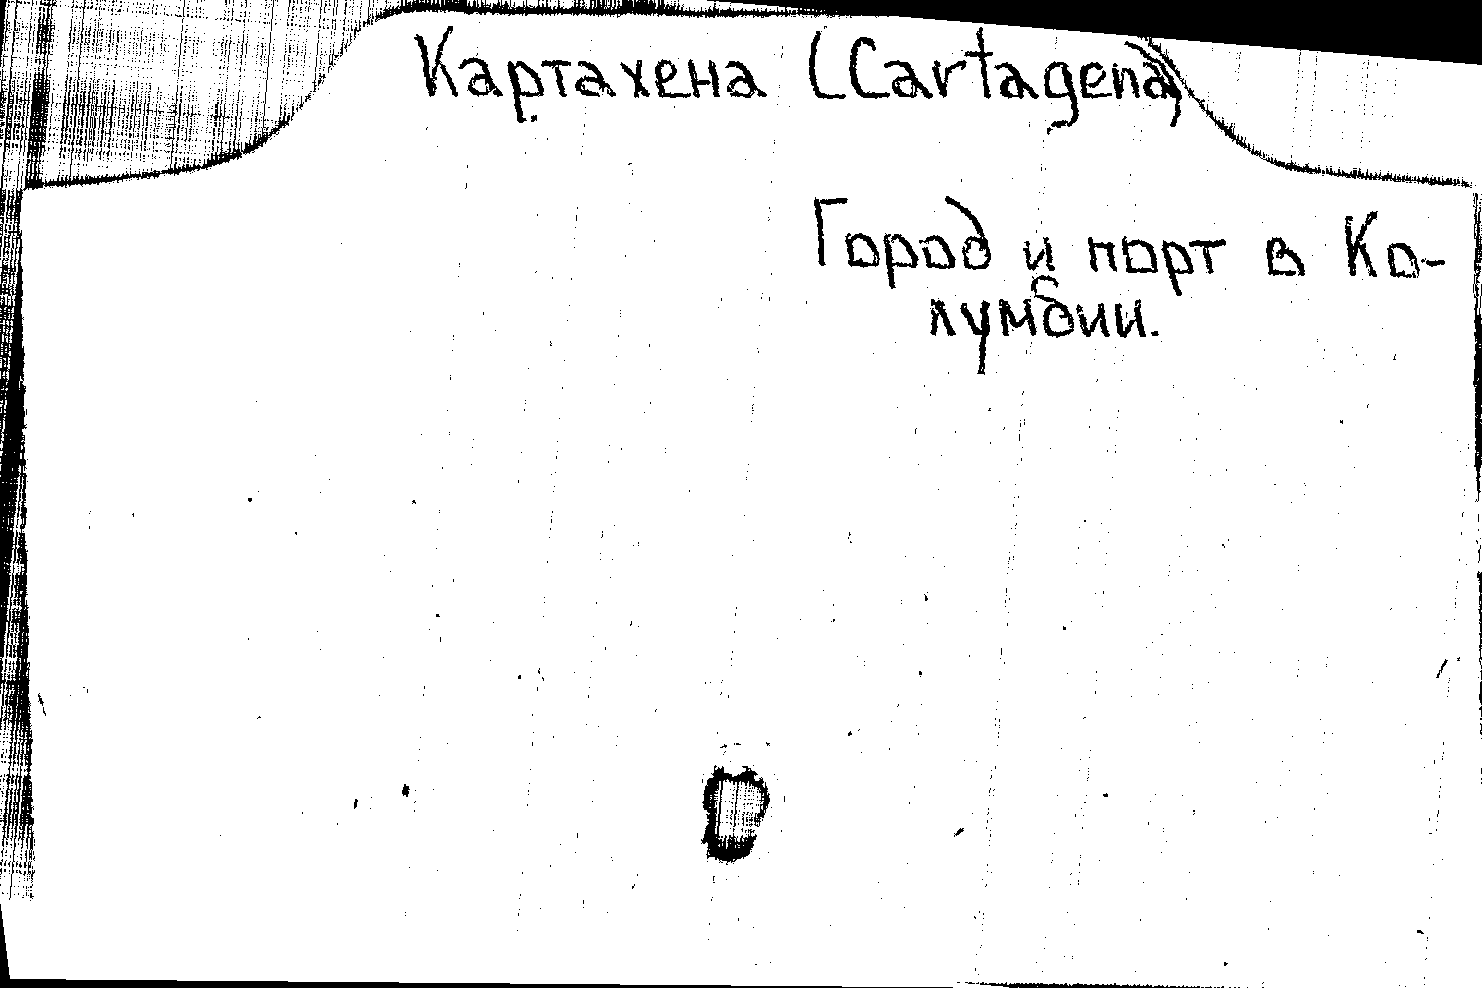 Картахена (Cartagena)
Город и порт в Ко-
лумбии.